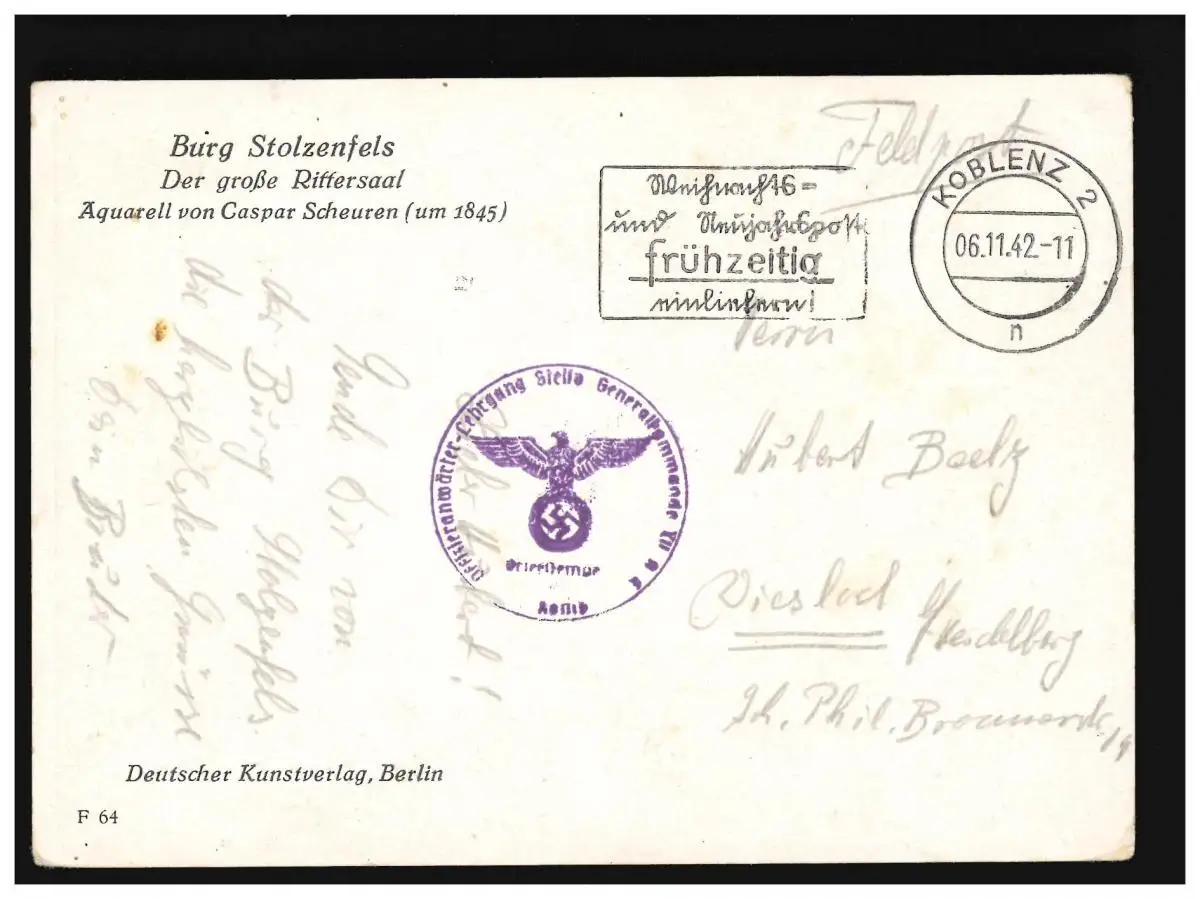 Burg Stolzenfels
Der große Rittersaal
Aquarell von Caspar Scheuren (um 1845)
Feldpost
Weihnachts=
und Neujahrspost
frühzeitig
einliefern!
KOBLENZ 2
06.11.42.-11
n
Offizieranwärter-Lehrgang Stellv Generalkommando XII A K
Briefstempel
Hubert!
Sende Dir von
der Burg Stolzenfels
die herzlichsten Grüsse
Dein Bruder
Herrn
Hubert
Wiesloch
Heidelberg
Phil.
Deutscher Kunstverlag, Berlin
F 64